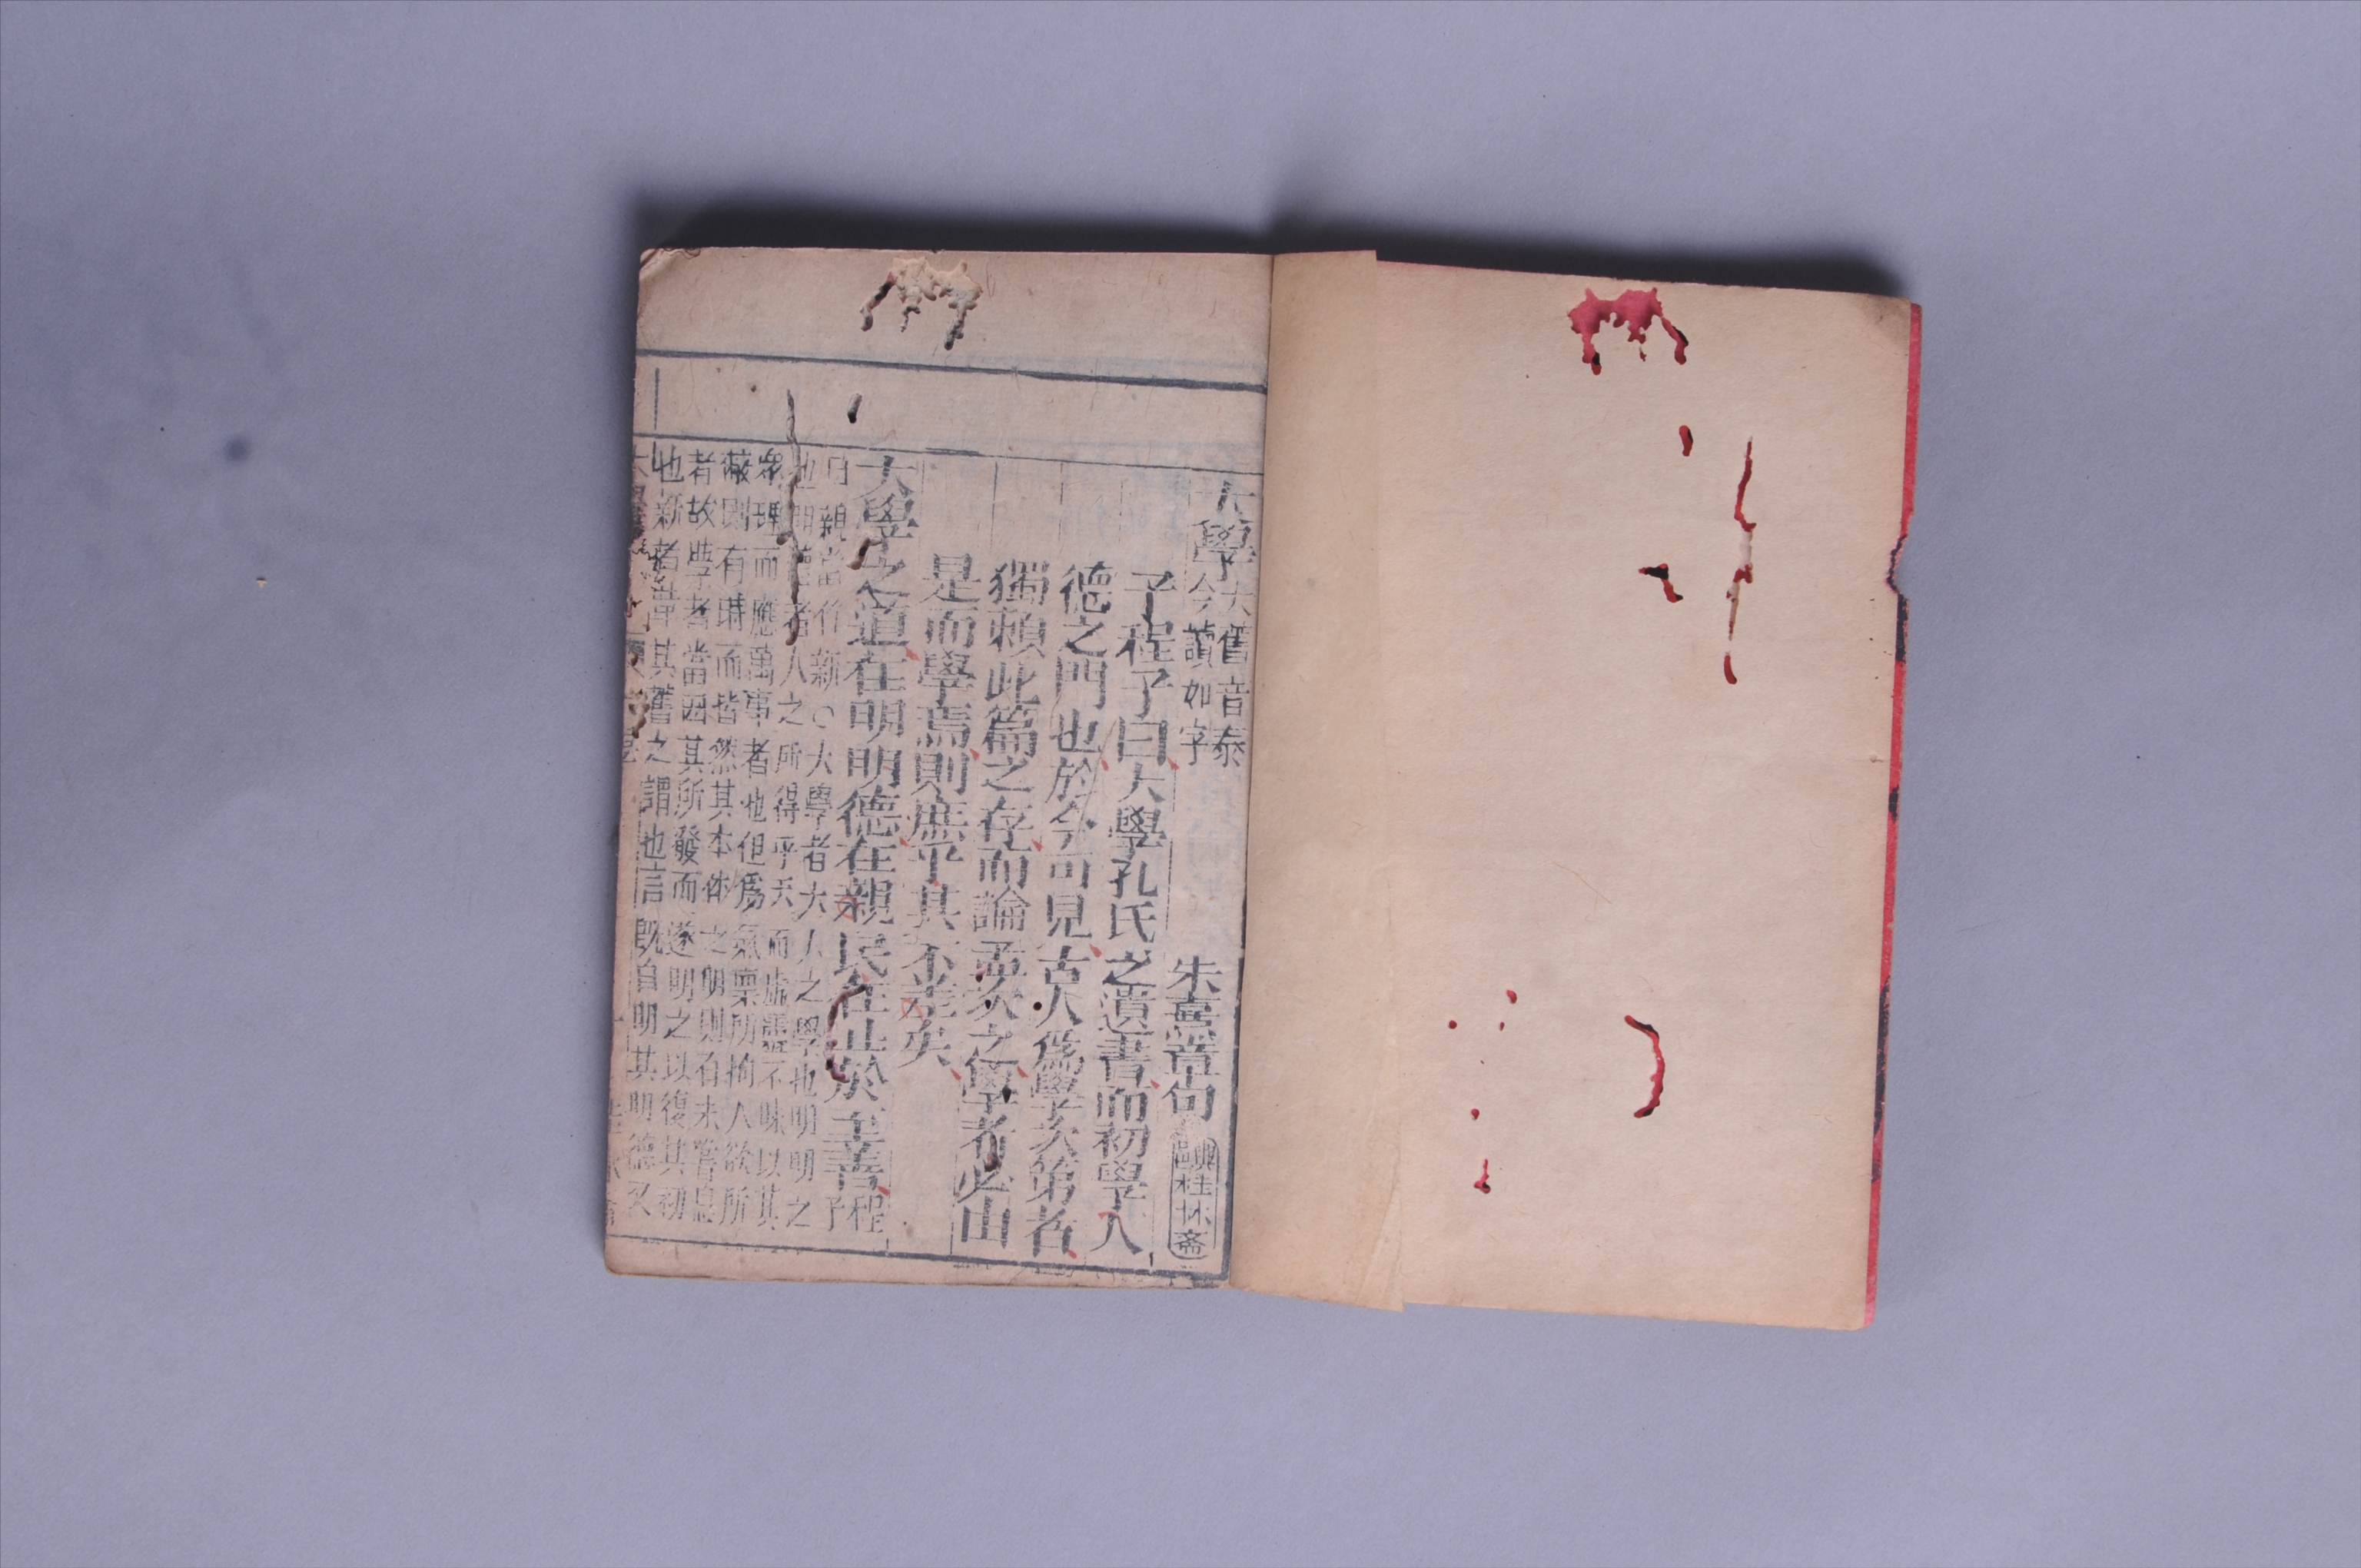 大學大舊音泰
今讀如字
朱熹章句
桂林斎
子程子曰大學孔氏之遺書而初學入
德之門也於今可見古人爲學次第者
獨賴此篇之存而論孟次之學者必由
是而學焉則庶乎其不差矣
大學之道在明明德在親民在止於至善程
子
曰親當作新○大學者大人之學也明明之
也明德者人之所得乎天而虛靈不昧以其
衆理而應萬事者也但爲氣禀所拘人欲所
蔽則有時而皆然其本体之明則有未嘗息
者故學者當因其所發而遂明之以復其初
也新者革其舊之謂也言旣自明其明德又